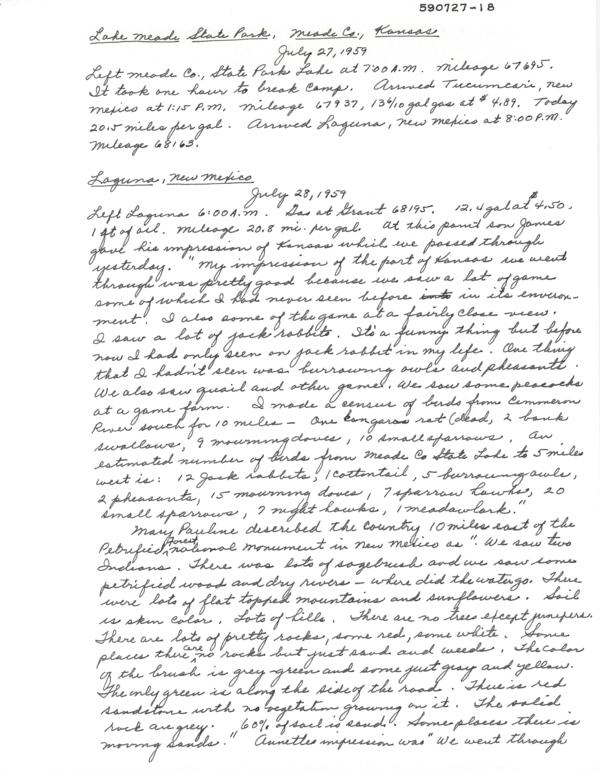 590727-18
Lake Meade State Park, Meade Co., Kansas
July 27, 1959
Left Meade Co., State Park Lake at 7:00 A.M. Mileage 67695.
It took one hour to break camp. Arrived Tucumcari, New
Mexico at 1:15 P.M. Mileage 67937, 13 4/10 gal gas at $4.89. Today
20.5 miles per gal. Arrived Laguna, New Mexico at 8:00 P.M.
Mileage 68163.
Laguna, New Mexico
July 28, 1959
Left Laguna 6:00 A.M. Gas at Grant 68195. 12.4 gal at $4.50.
1 qt of oil. Mileage 20.8 mi. per gal. At this point son James
gave his impression of Kansas which we passed through
yesterday. "My impression of the part of Kansas we went
through was pretty good because we saw a lot of game
some of which I had never seen before in its environ-
ment. I also some of the game at a fairly close view.
I saw a lot of jack rabbits. It's a funny thing but before
now I had only seen on jack rabbit in my life. One thing
that I hadn't seen was burrowing owls and pheasants.
We also saw quail and other game. We saw some peacocks
at a game farm. I made a census of birds from Cimmeron
River south for 10 miles - One kangaroo rat (dead, 2 bank
swallows, 9 mourning doves, 10 small sparrows. An
estimated number of birds from Meade Co State Lake to 5 miles
west is: 12 Jack rabbits, 1 cottontail, 5 burrowing owls,
2 pheasants, 15 mourning doves, 7 sparrow hawks, 20
small sparrows, 7 night hawks, 1 meadowlark."
Mary Pauline described the country 10 miles east of the
Petrified Forest national monument in New Mexico as ". We saw two
Indians. There was lots of sagebrush and we saw some
petrified wood and dry rivers - where did the water go. There
were lots of flat topped mountains and sunflowers. Soil
is skin color. Lots of hills. There are no trees except junepers.
There are lots of pretty rocks, some red, some white. Some
places there are no rocks but just sand and weeds. The color
of the brush is grey-green and some just gray and yellow.
The only green is along the side of the road. There is red
sandstone with no vegetation growing on it. The solid
rock are grey. 60% of soil is sand. Some places there is
moving sands." Annettes impression was "We went through